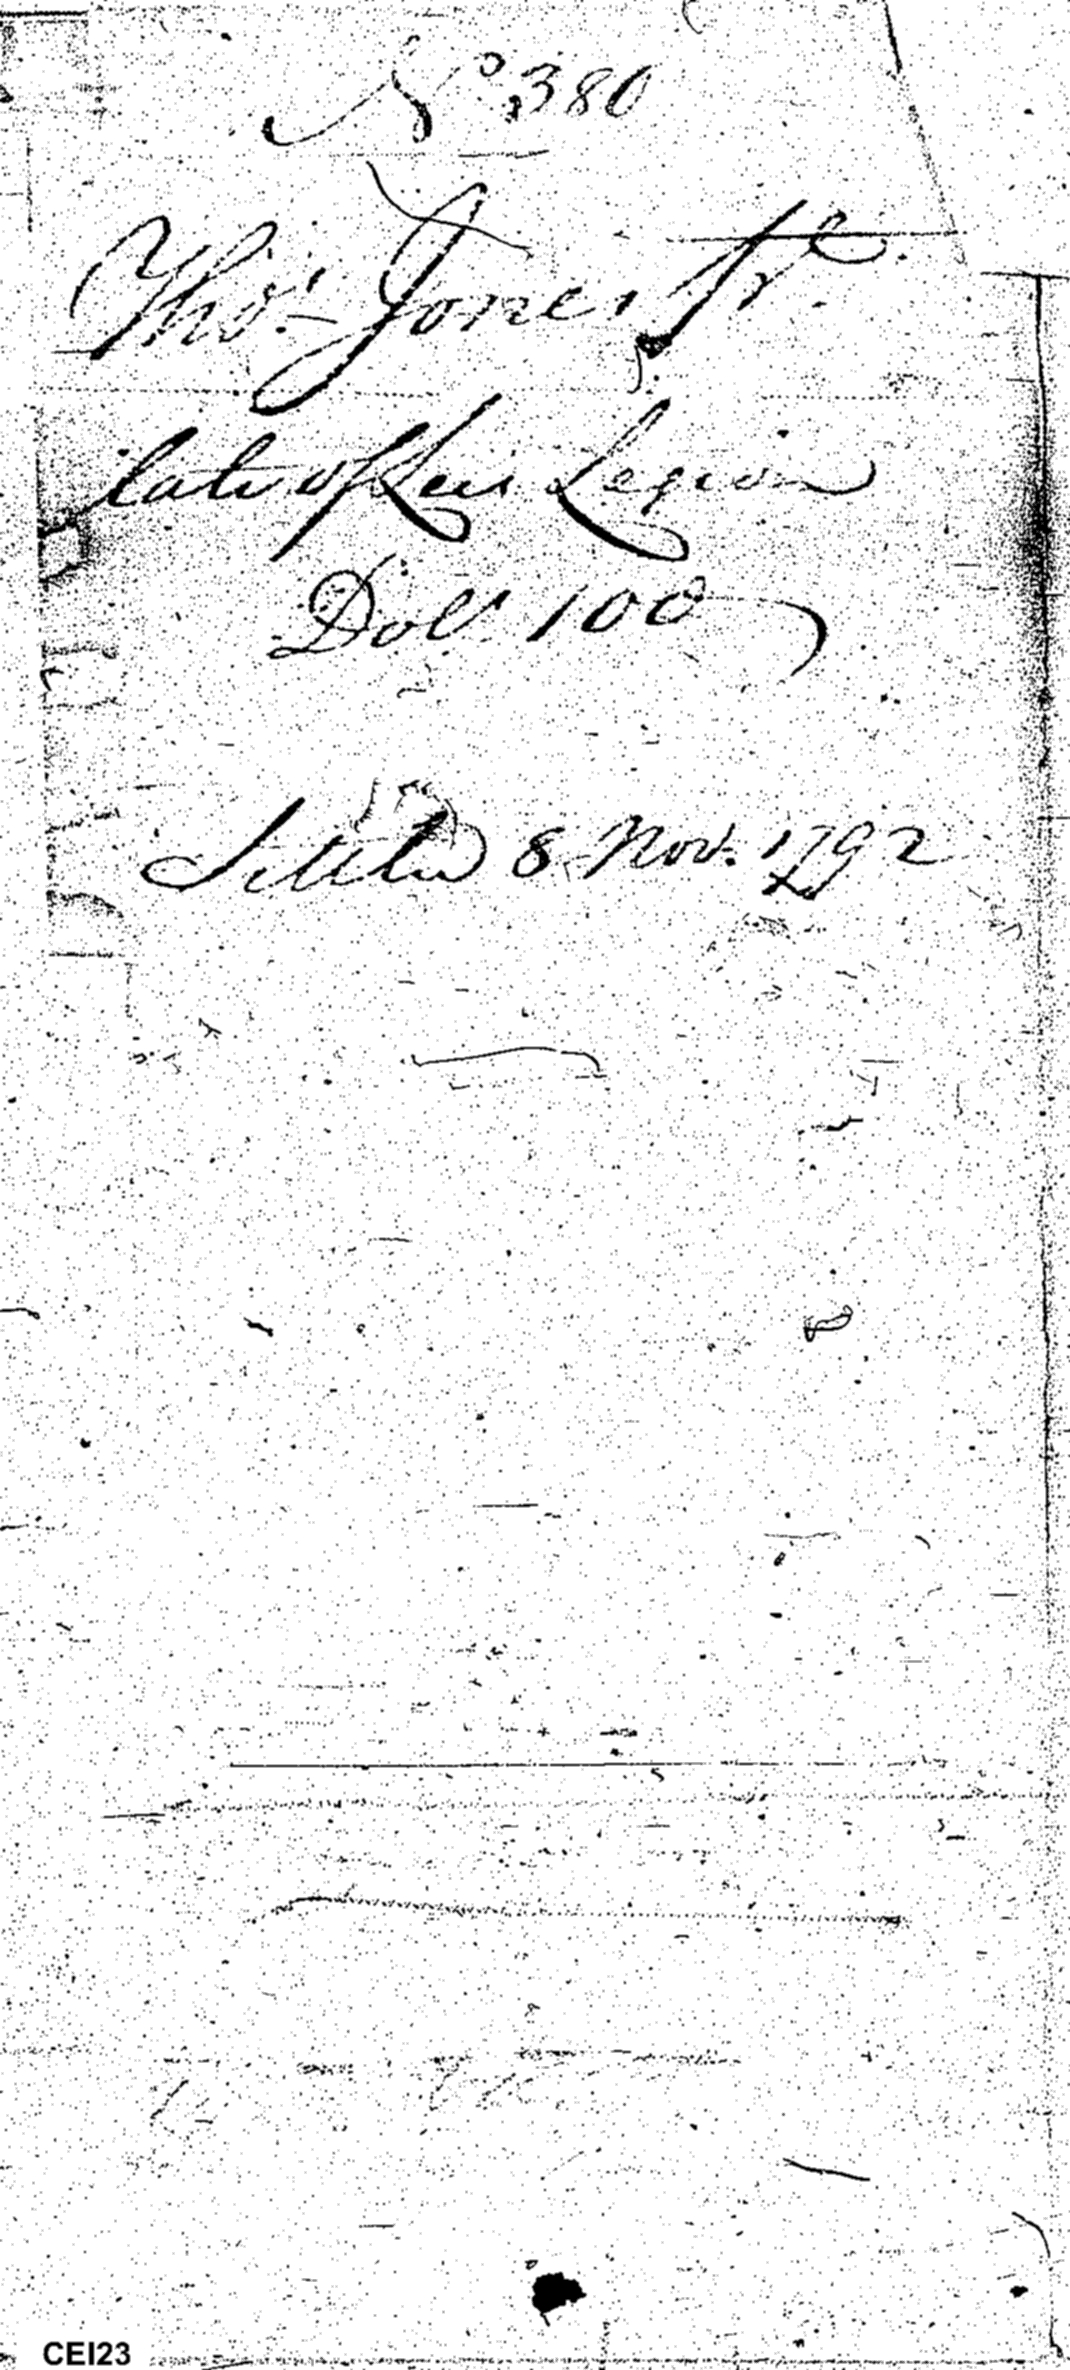 No 380
Thos. Jones Jr.
late of Lees Legion
Dolls. 100
Settled 8 Nov. 1792
CEI23